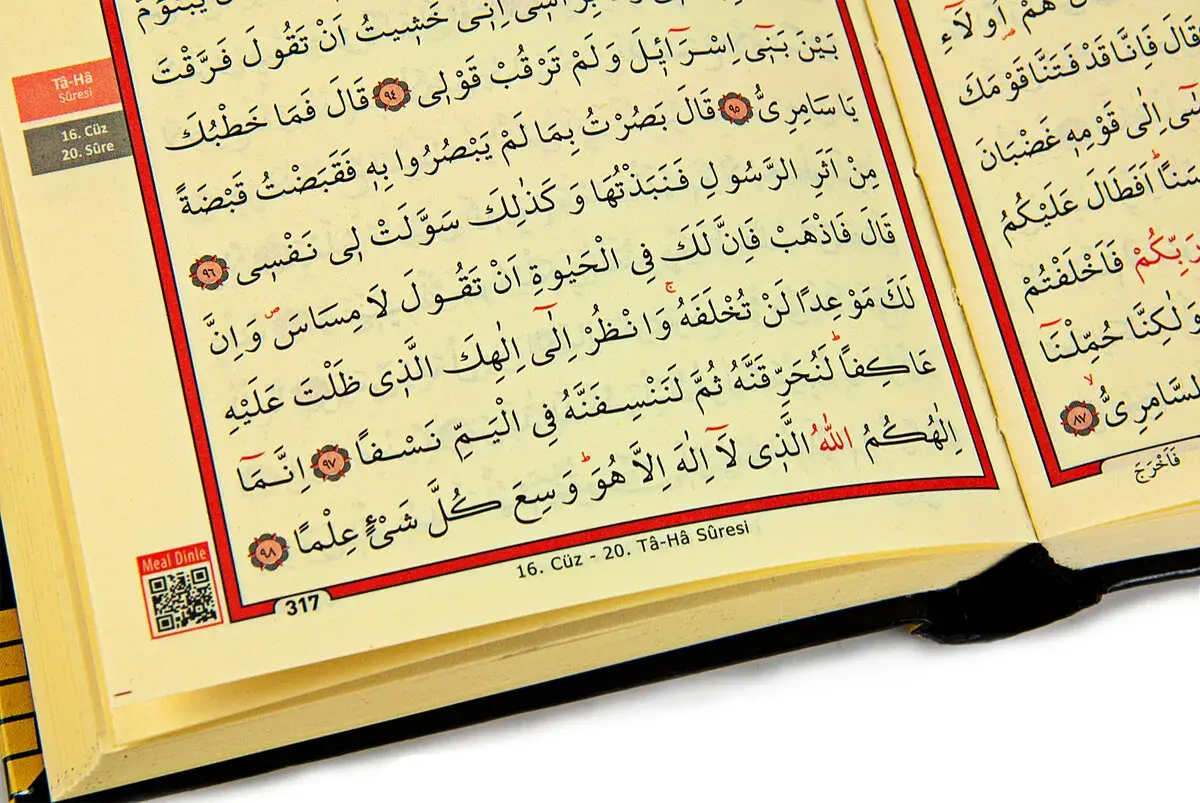 هُمْ اُو۬لَٓاءِ
قَالَ فَاِنَّا قَدْ فَتَنَّا قَوْمَكَ
اِلٰى قَوْمِه۪ غَضْبَانَ
اَفَطَالَ عَلَيْكُمُ
رَبِّكُمْ فَاَخْلَفْتُمْ
وَلٰكِنَّا حُمِّلْنَٓا
السَّامِرِيُّۙ ﴿٨٧﴾
فَاَخْرَجَ
اِنّ۪ي خَش۪يتُ اَنْ تَقُولَ فَرَّقْتَ
بَيْنَ بَن۪ٓي اِسْرَٓائ۪لَ وَلَمْ تَرْقُبْ قَوْل۪ي ﴿٩٤﴾ قَالَ فَمَا خَطْبُكَ
يَا سَامِرِيُّ ﴿٩٥﴾ قَالَ بَصُرْتُ بِمَا لَمْ يَبْصُرُوا بِه۪ فَقَبَضْتُ قَبْضَةً
مِنْ اَثَرِ الرَّسُولِ فَنَبَذْتُهَا وَكَذٰلِكَ سَوَّلَتْ ل۪ي نَفْس۪ي ﴿٩٦﴾
قَالَ فَاذْهَبْ فَاِنَّ لَكَ فِي الْحَيٰوةِ اَنْ تَقُولَ لَا مِسَاسَۖ وَاِنَّ
لَكَ مَوْعِدًا لَنْ تُخْلَفَهُۚ وَانْظُرْ اِلٰٓى اِلٰهِكَ الَّذ۪ي ظَلْتَ عَلَيْهِ
عَاكِفاًۜ لَنُحَرِّقَنَّهُ ثُمَّ لَنَنْسِفَنَّهُ فِي الْيَمِّ نَسْفاً ﴿٩٧﴾ اِنَّمَٓا
اِلٰهُكُمُ اللّٰهُ الَّذ۪ي لَٓا اِلٰهَ اِلَّا هُوَۜ وَسِعَ كُلَّ شَيْءٍ عِلْمًا ﴿٩٨﴾
Tâ-Hâ
Sûresi
16. Cüz
20. Sûre
Meal Dinle
317
16. Cüz - 20. Tâ-Hâ Sûresi